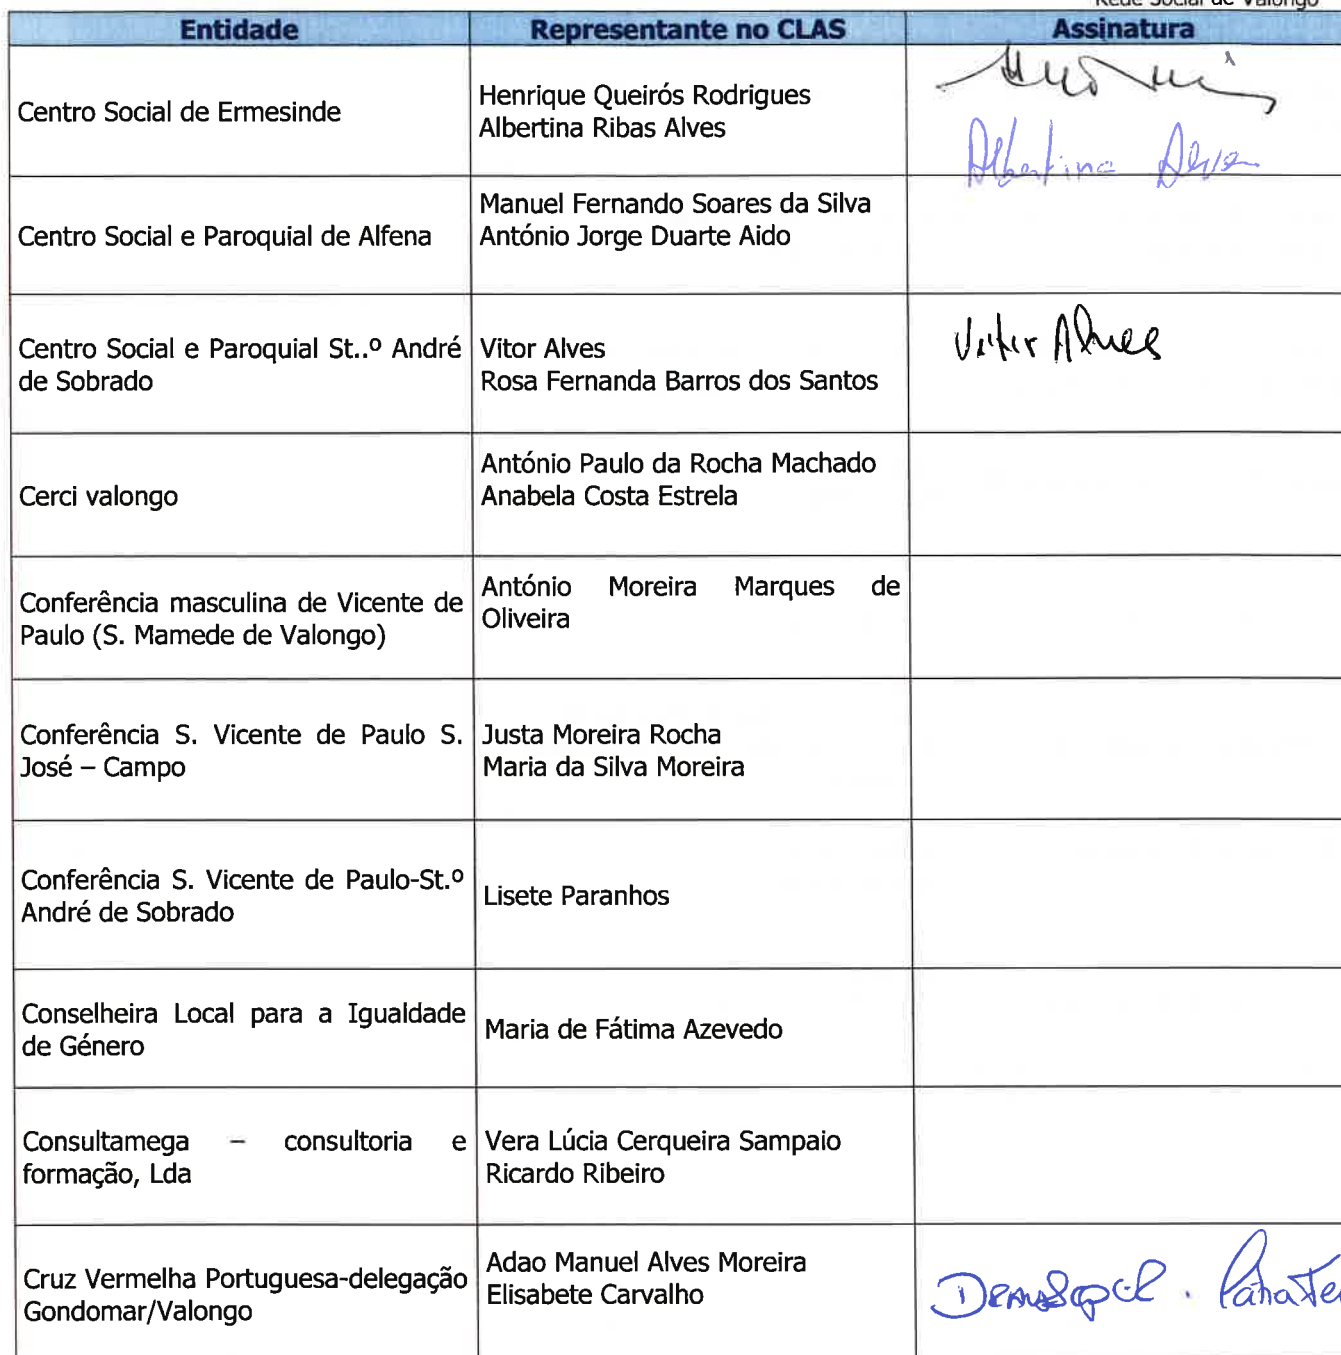 Rede Social de Valongo
Entidade Representante no CLAS Assinatura
Centro Social de Ermesinde
Henrique Queirós Rodrigues
Albertina Ribas Alves
Albertina Alves
Centro Social e Paroquial de Alfena
Manuel Fernando Soares da Silva
António Jorge Duarte Aido
Centro Social e Paroquial St..º André
de Sobrado
Vitor Alves
Rosa Fernanda Barros dos Santos
Vitor Alves
Cerci valongo
António Paulo da Rocha Machado
Anabela Costa Estrela
Conferência masculina de Vicente de
Paulo (S. Mamede de Valongo)
António Moreira Marques de
Oliveira
Conferência S. Vicente de Paulo S.
José – Campo
Justa Moreira Rocha
Maria da Silva Moreira
Conferência S. Vicente de Paulo-St.º
André de Sobrado
Lisete Paranhos
Conselheira Local para a Igualdade
de Género
Maria de Fátima Azevedo
Consultamega – consultoria e
formação, Lda
Vera Lúcia Cerqueira Sampaio
Ricardo Ribeiro
Cruz Vermelha Portuguesa-delegação
Gondomar/Valongo
Adao Manuel Alves Moreira
Elisabete Carvalho